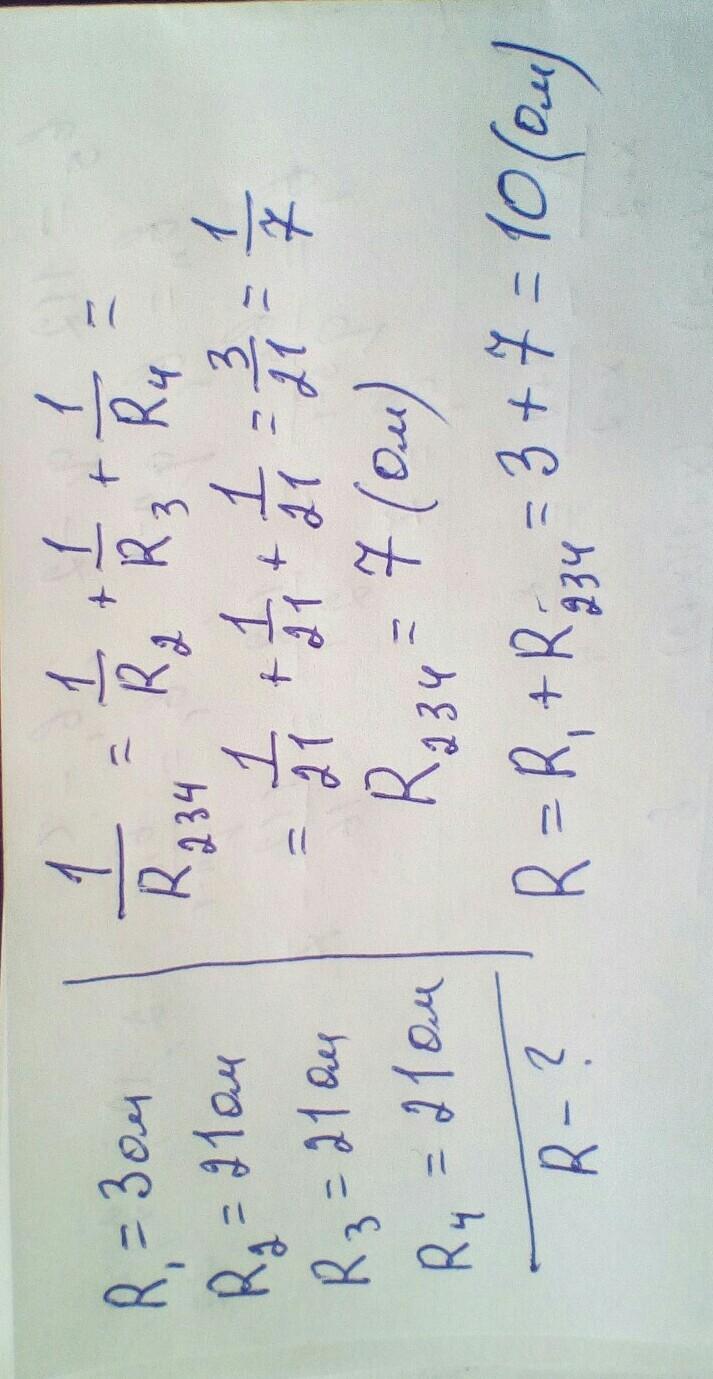 R₁ = 3 ом
R₂ = 21 ом
R₃ = 21 ом
R₄ = 21 ом
R - ?
1/R₂₃₄ = 1/R₂ + 1/R₃ + 1/R₄ =
= 1/21 + 1/21 + 1/21 = 3/21 = 1/7
R₂₃₄ = 7 (ом)
R = R₁ + R₂₃₄ = 3 + 7 = 10 (ом)